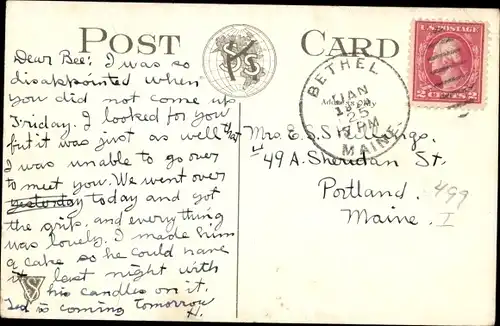 POST CARD
Dear Bee: I was so
disappointed when
you did not come up
Friday. I looked for you
but it was just as well
I was unable to go over
to meet you. We went over
yesterday today and got
the grip and everything
was lovely. I made him
a cake so he could have
it last night with
his candles on it.
Ted is coming tomorrow
H.
U.S. POSTAGE
2 CENTS 2
BETHEL
JAN
18
25
PM
MAINE
Address Only
Mrs. E. S. Stallings.
49 A. Sheridan St.
Portland
Maine.
499
I